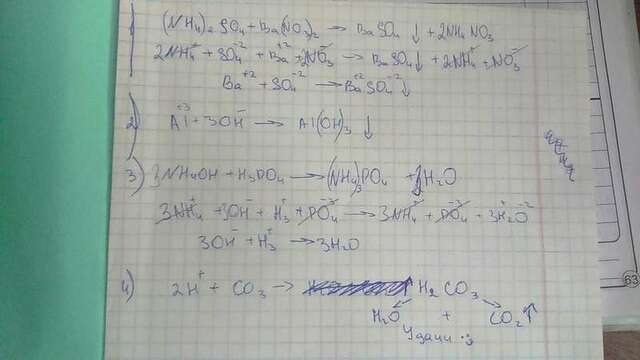 1) (NH₄)₂SO₄ + Ba(NO₃)₂ → BaSO₄ ↓ + 2NH₄NO₃
2NH₄⁺ + SO₄⁻² + Ba⁺² + 2NO₃⁻ → BaSO₄ ↓ + 2NH₄⁺ + 2NO₃⁻
Ba⁺² + SO₄⁻² → Ba⁺²SO₄⁻² ↓
2) Al⁺³ + 3OH⁻ → Al(OH)₃ ↓
3) 3NH₄OH + H₃PO₄ → (NH₄)₃PO₄ + 3H₂O
3NH₄⁺ + 3OH⁻ + H₃⁺ + PO₄⁻³ → 3NH₄⁺ + PO₄⁻³ + 3H₂⁺O⁻²
3OH⁻ + H₃⁺ → 3H₂O
4) 2H⁺ + CO₃ → H₂CO₃
H₂O + CO₂ ↑
Удачи :3
63